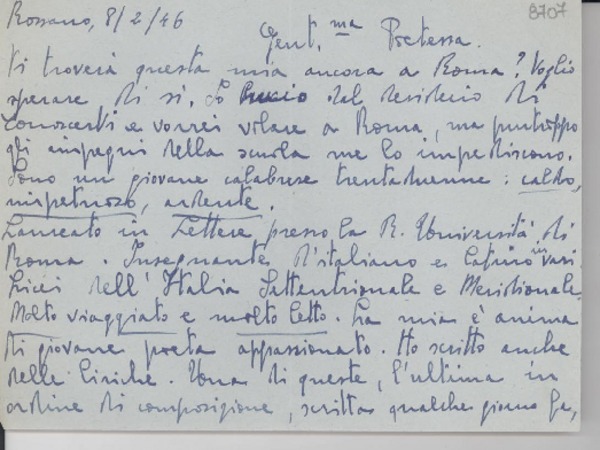 8707
Rossano, 8/2/46
Gent.ma Poetessa.
Vi troverà questa mia ancora a Roma? Voglio
sperare di sì. Io brucio dal desiderio di
conoscervi e vorrei volare a Roma, ma purtroppo
gli impegni della scuola me lo impediscono.
Sono un giovane calabrese trentaduenne: caldo,
impetuoso, ardente.
Laureato in Lettere presso la R. Università di
Roma. Insegnante d'italiano e Latino in vari
Licei dell'Italia Settentrionale e Meridionale.
Molto viaggiato e molto letto. La mia è anima
di giovane poeta appassionato. Ho scritto anche
delle liriche. Una di queste, l'ultima in
ordine di composizione, scritta qualche giorno fa,